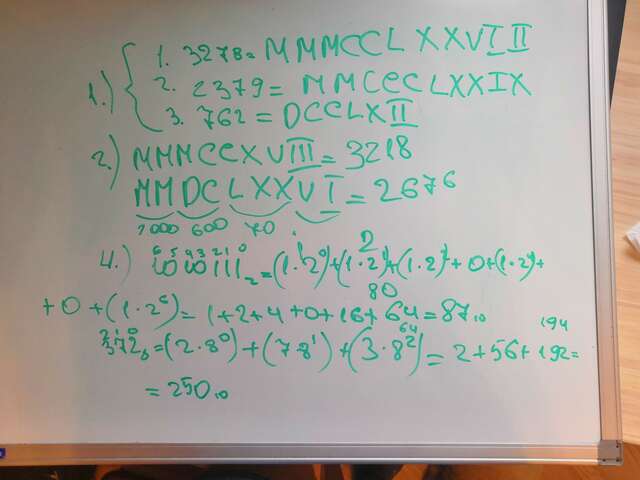 1.) 1. 3278 = MMMCCLXXVIII
2. 2379 = MMCCCLXXIX
3. 762 = DCCLXII
2.) MMMCCXVIII = 3218
MMDCLXXVI = 2676
2000 600 70
6 5 4 3 2 1 0
4.) 1010111₂ = (1·2⁰)+(1·2¹)+(1·2²)+0+(1·2⁴)+
+0+(1·2⁶)=1+2+4+0+16+64=87₁₀
2 1 0
372₈=(2·8⁰)+(7·8¹)+(3·8²)=2+56+192=
64
194
=250₁₀